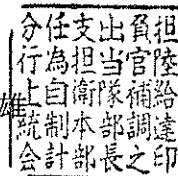 分任支出負担
行為担当官陸
上自衛隊補給
統制本部調達
会計部長之印
雄